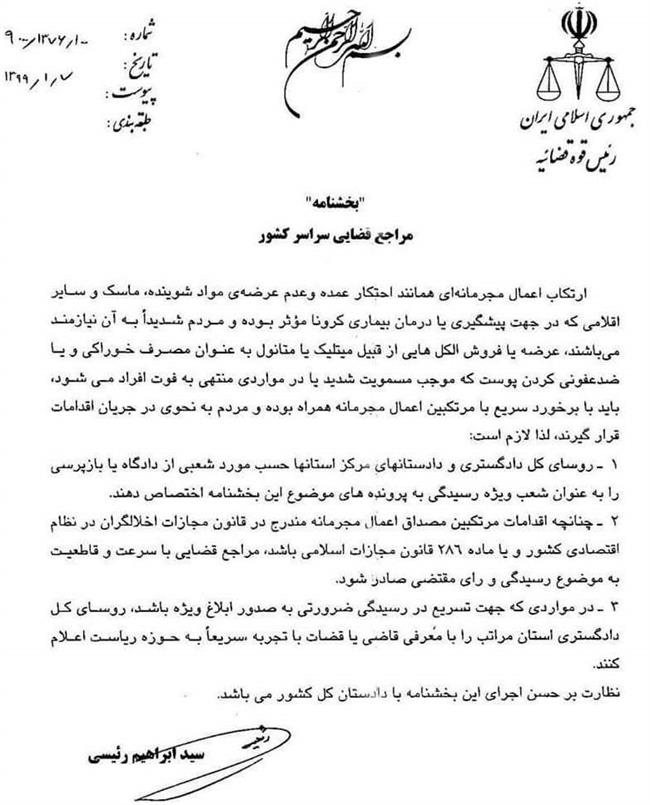 بسم الله الرحمن الرحیم
جمهوری اسلامی ایران
رئیس قوه قضائیه
شماره : ۹۰۰۰/۱۳۷۶/۱۰۰
تاریخ : ۱۳۹۹/۱/۷
پیوست :
طبقه‌بندی :
"بخشنامه"
مراجع قضایی سراسر کشور
ارتکاب اعمال مجرمانه‌ای همانند احتکار عمده وعدم عرضه‌ی مواد شوینده، ماسک و سایر
اقلامی که در جهت پیشگیری یا درمان بیماری کرونا مؤثر بوده و مردم شدیداً به آن نیازمند
می‌باشند، عرضه یا فروش الکل هایی از قبیل میتلیک یا متانول به عنوان مصرف خوراکی و یا
ضدعفونی کردن پوست که موجب مسمویت شدید یا در مواردی منتهی به فوت افراد می شود،
باید با برخورد سریع با مرتکبین اعمال مجرمانه همراه بوده و مردم به نحوی در جریان اقدامات
قرار گیرند، لذا لازم است:
۱ ـ روسای کل دادگستری و دادستانهای مرکز استانها حسب مورد شعبی از دادگاه یا بازپرسی
را به عنوان شعب ویژه رسیدگی به پرونده های موضوع این بخشنامه اختصاص دهند.
۲ ـ چنانچه اقدامات مرتکبین مصداق اعمال مجرمانه مندرج در قانون مجازات اخلالگران در نظام
اقتصادی کشور و یا ماده ۲۸۶ قانون مجازات اسلامی باشد، مراجع قضایی با سرعت و قاطعیت
به موضوع رسیدگی و رای مقتضی صادر شود.
۳ ـ در مواردی که جهت تسریع در رسیدگی ضرورتی به صدور ابلاغ ویژه باشد، روسای کل
دادگستری استان مراتب را با معرفی قاضی یا قضات با تجربه ،سریعاً به حوزه ریاست اعلام
کنند.
نظارت بر حسن اجرای این بخشنامه با دادستان کل کشور می باشد.
سید ابراهیم رئیسی